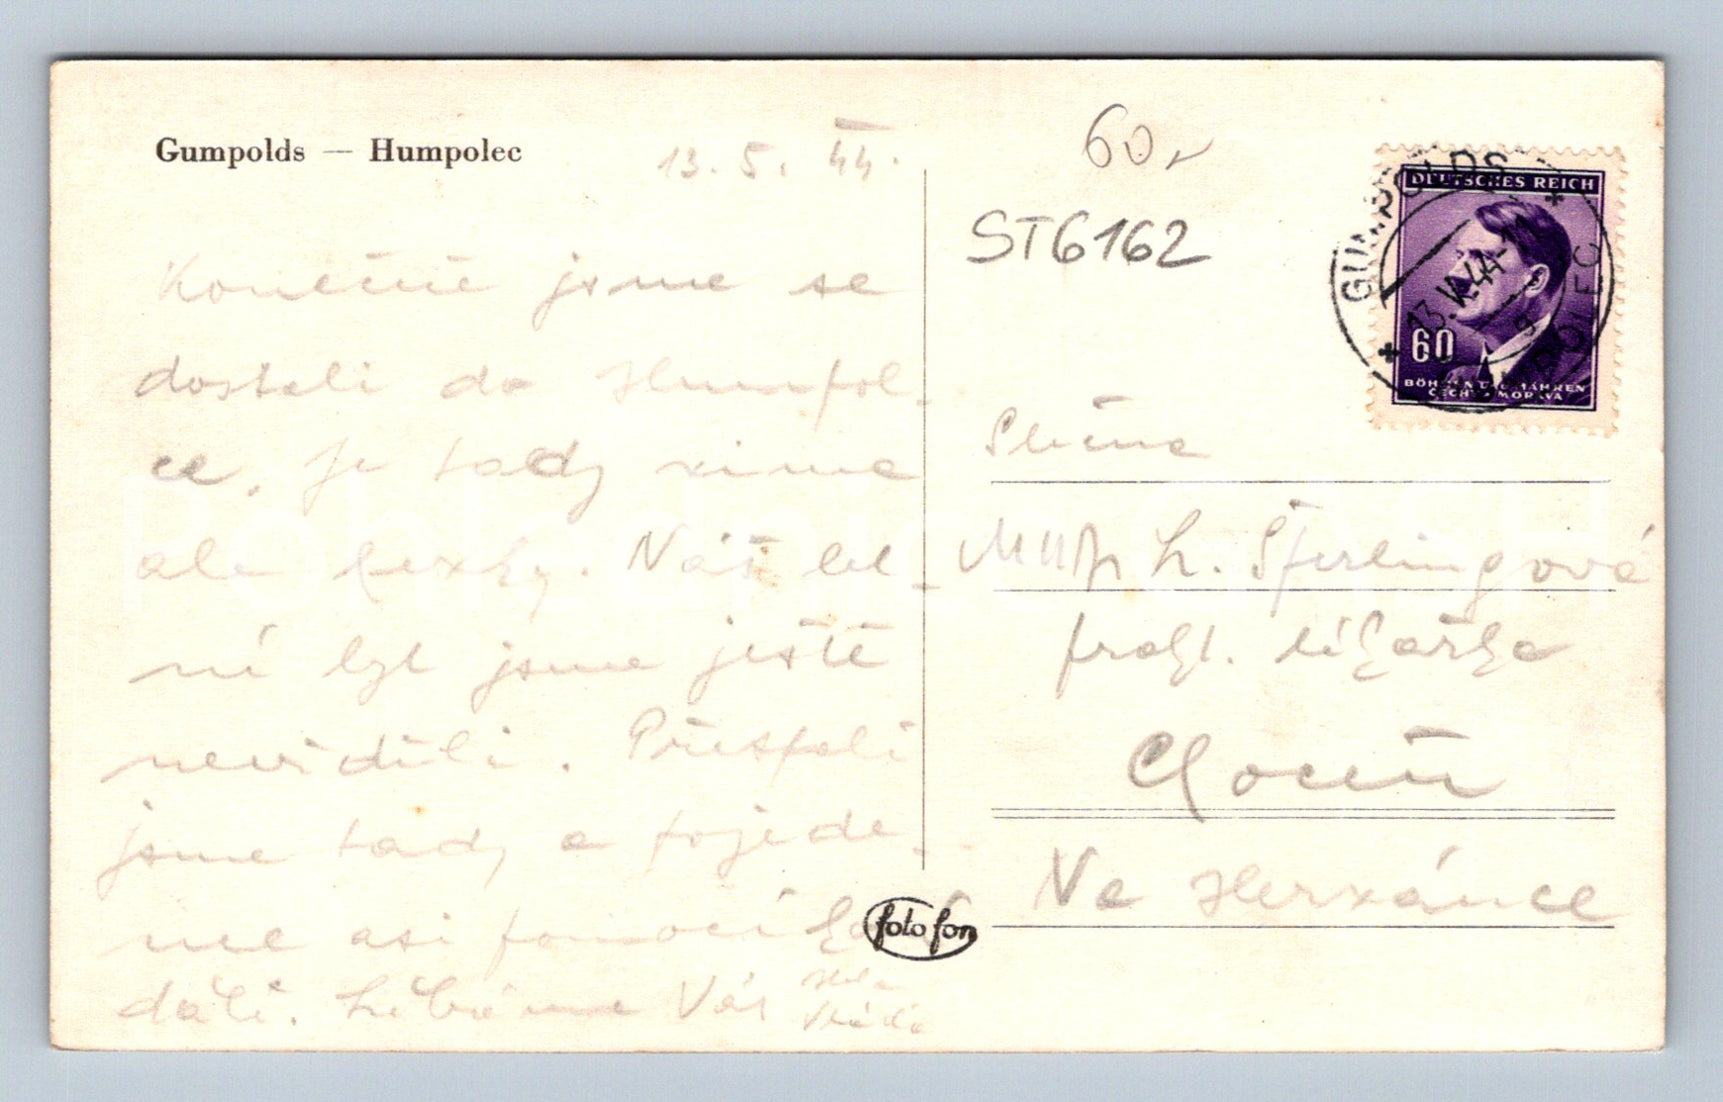 Gumpolds — Humpolec
13. 5. 44.
Konečně jsme se
dostali do Humpol-
ce. Je tady zima
ale hezky. Náš cíl -
ní byt jsme ještě
neviděli. Přespali
jsme tady a pojede-
me asi pomocí
dálí. Líbáme Vás
Vláďa
60,-
ST6162
DEUTSCHES REICH
60
BÖHMEN UND MÄHREN
ČECHY A MORAVA
GUMPOLDS
HUMPOLEC
13. V. 44 -
Slečna
MUDr L. Šperlingová
prakt. lékařka
Na Herzánce
foto fon